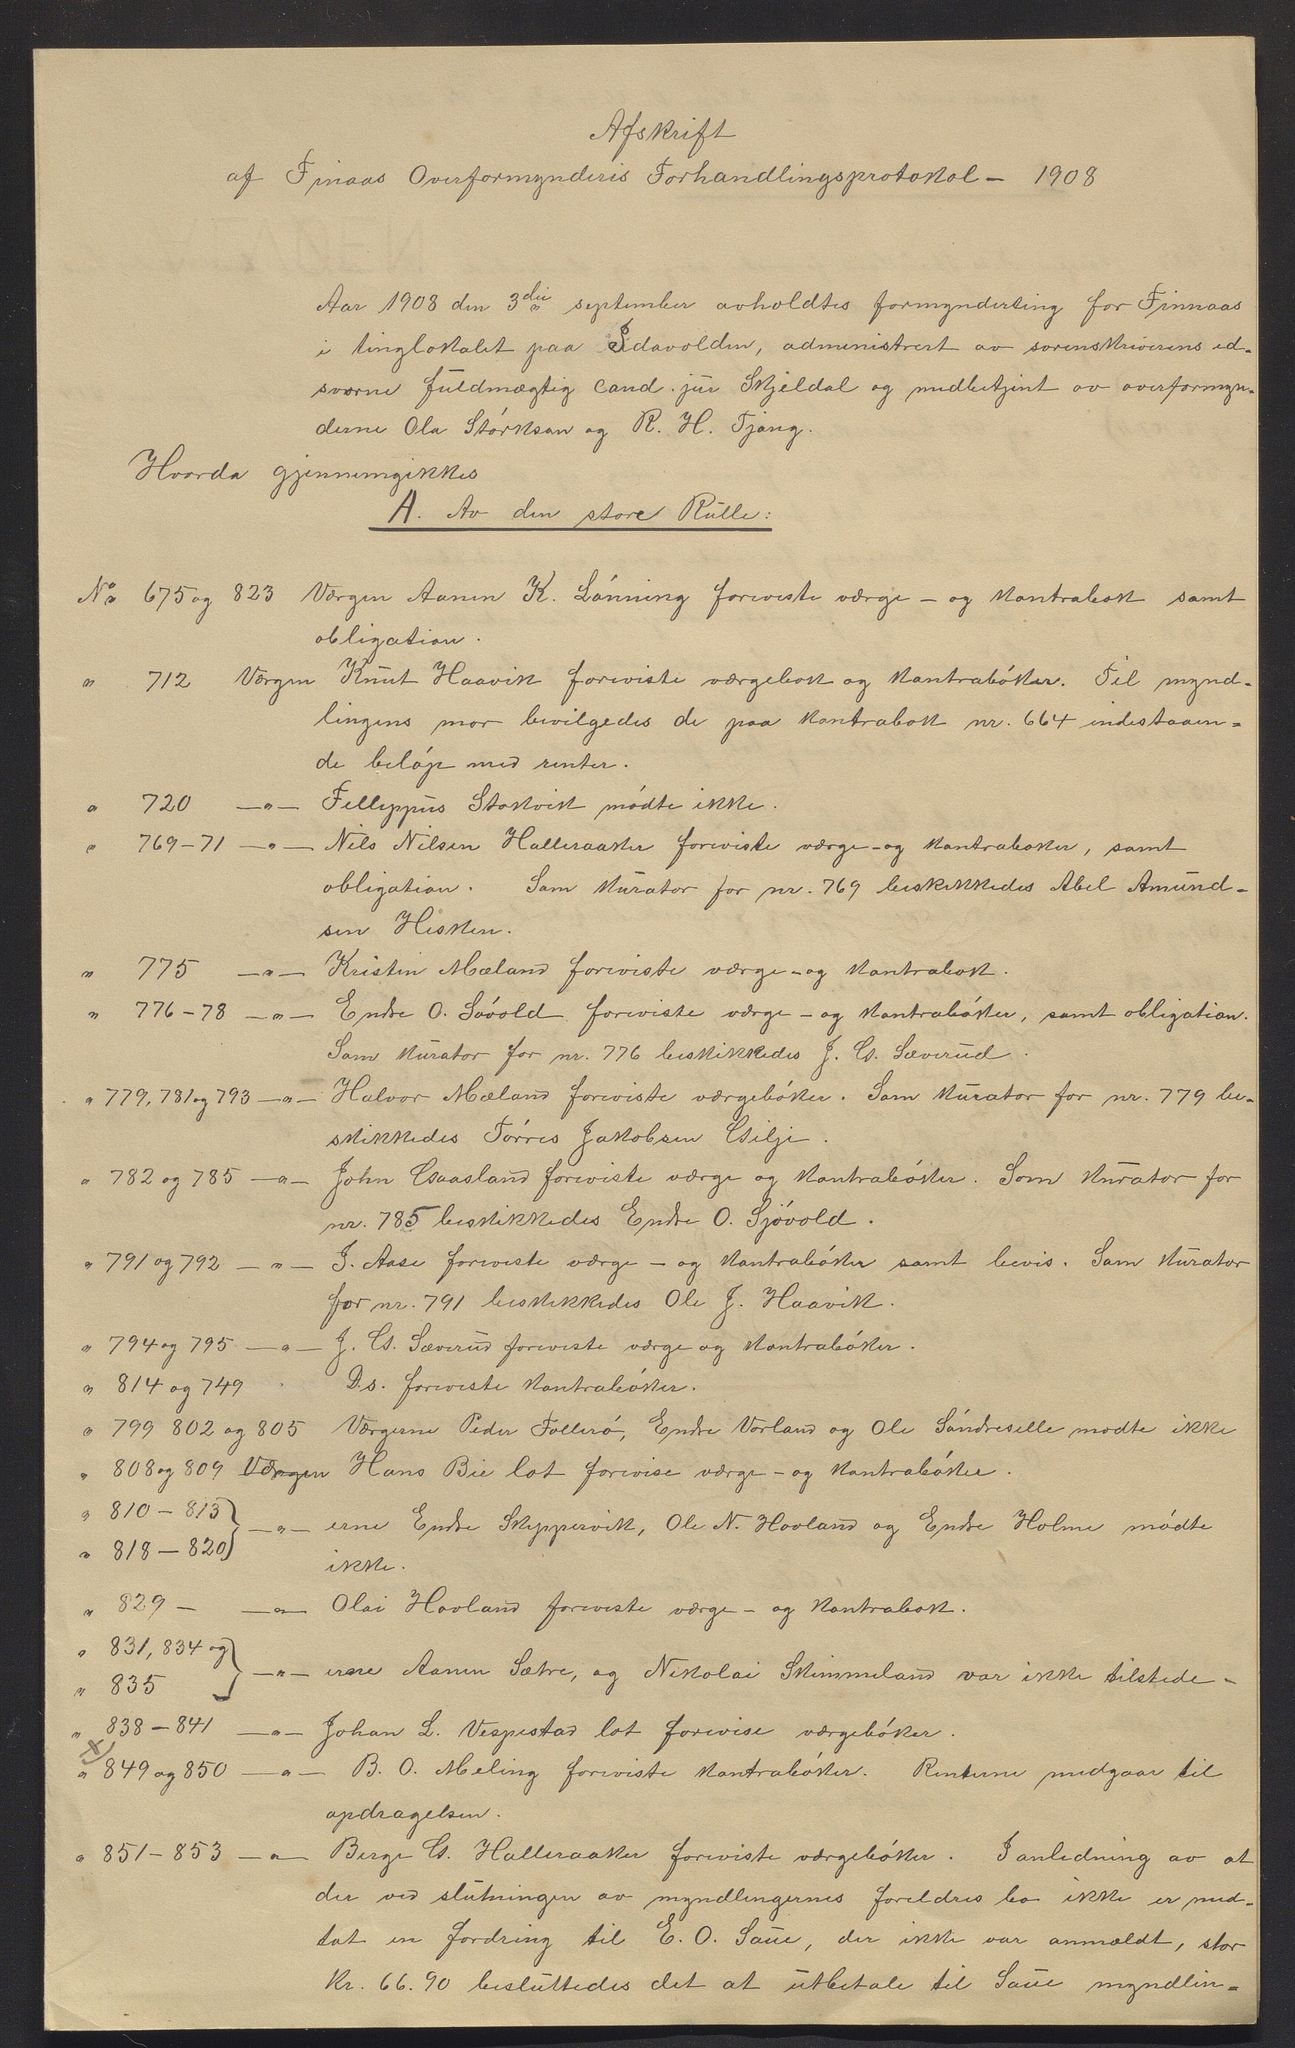 Afskrift
af Finaas Overformynderis Forhandlingsprotokol – 1908
Aar 1908 den 3die september avholdtes formynderting for Finnaas
i tinglokalet paa Idavolden, administrert av sorenskriverens ed-
svorne fuldmægtig cand. jur Skjeldal og medbetjent av overformyn-
derne Ola Stórksan og R. H. Tjong.
Hvorda gjennemgikkes
A. Av den store Rulle:
No 675 og 823 Værgen Aanen K. Lónning foreviste værge – og kontrabok samt
obligation.
" 712 Værgen Knut Haavik foreviste værgebok og kontrabóker. Til mynd-
lingens mor bevilgedes de paa kontrabok nr. 664 indestaaen-
de belóp med renter.
" 720 —"— Fellippus Stokvik módte ikke.
" 769-71 —"— Nils Nilsen Halleraaker foreviste værge- og kontraboker, samt
obligation. Som kurator for nr. 769 beskikkedes Abel Amund-
sen Hisken.
" 775 —"— Kristin Mæland foreviste værge- og kontrabok.
" 776-78 —"— Endre O. Sóvold foreviste værge – og kontrabóker, samt obligation.
Som kurator for nr. 776 beskikkedes J. G. Sæverud.
" 779, 781 og 793 —"— Halvor Mæland foreviste værgebóker. Som kurator for nr. 779 be-
skikkedes Tórres Jakobsen Gilje.
" 782 og 785 —"— John Gaasland foreviste værge og kontrabóker. Som kurator for
nr. 785 beskikkedes Endre O. Sjóvold.
" 791 og 792 —"— I. Aase foreviste værge – og kontrabóker samt bevis. Som kurator
for nr. 791 beskikkedes Ole J. Haavik.
" 794 og 795 —"— J. G. Sæverud foreviste værge og kontrabóker.
" 814 og 749 D.s. foreviste kontrabóker.
" 799 802 og 805 Værgerne Peder Folleró, Endre Vorland og Ole Sóndreselle modte ikke
" 808 og 809 Værgen Hans Bie lot forevise værge – og kontrabóker.
" 810 – 813 } —"— erne Endre Skyppervik, Ole N. Hovland og Endre Holme módte
" 818 – 820 } ikke.
" 829 – —"— Olai Hovland foreviste værge – og kontrabok.
" 831, 834 og } —"— erne Aanen Sætre, og Nikolai Skimmeland var ikke tilstede –
" 835
" 838 – 841 —"— Johan L. Vespestad lot forevise værgebóker.
x) " 849 og 850 —"— B. O. Meling foreviste kontrabóker. Renterne medgaar til
opdragelsen.
" 851 – 853 —"— Berge G. Halleraaker foreviste værgebóker. I anledning av at
der ved slutningen av myndlingernes foreldres bo ikke er med-
tat en fordring til E. O. Saue, der ikke var anmældt, stor
kr. 66.90 besluttedes det at utbetale til Saue myndlin-